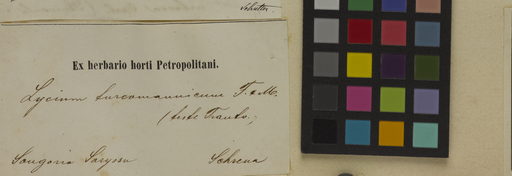 Ex herbario horti Petropolitani.
Lycium turcomannicum F. & M.
(teste Trautv.)
Songoria Schrenk